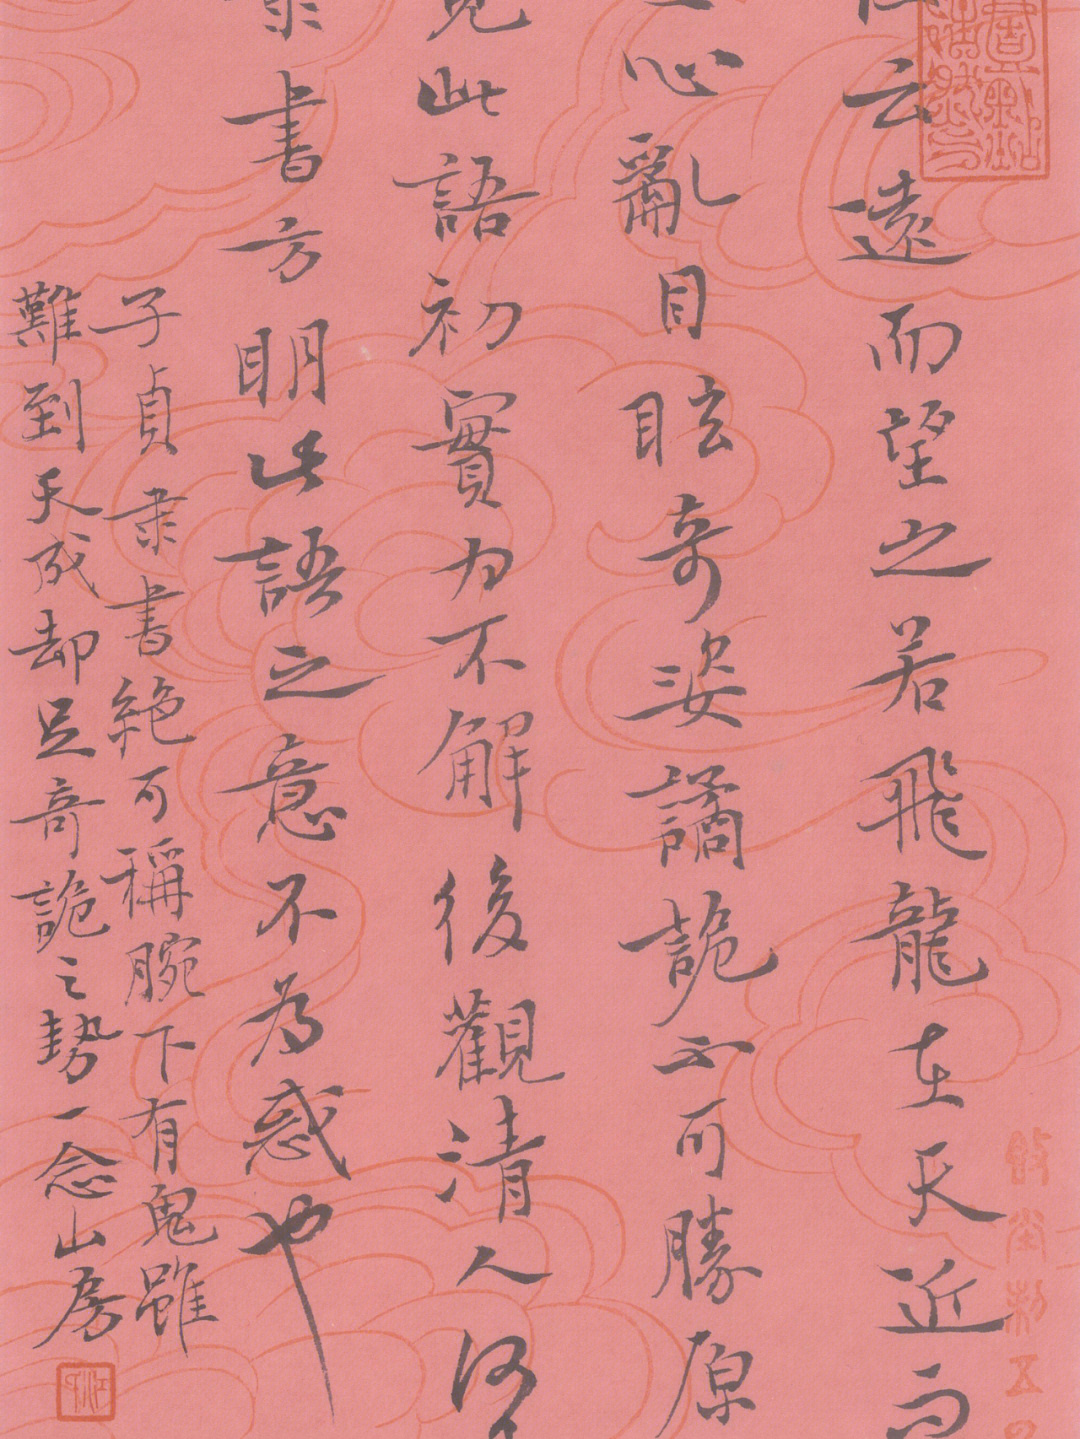 云遠而望之若飛龍在天近而
心亂目眩奇姿譎詭不可勝原
此語初實为不解後觀清人何
隶書方明此語之意不為惑也
子貞隶書絶可稱腕下有鬼雖
難到天成却足奇詭之勢一念山房